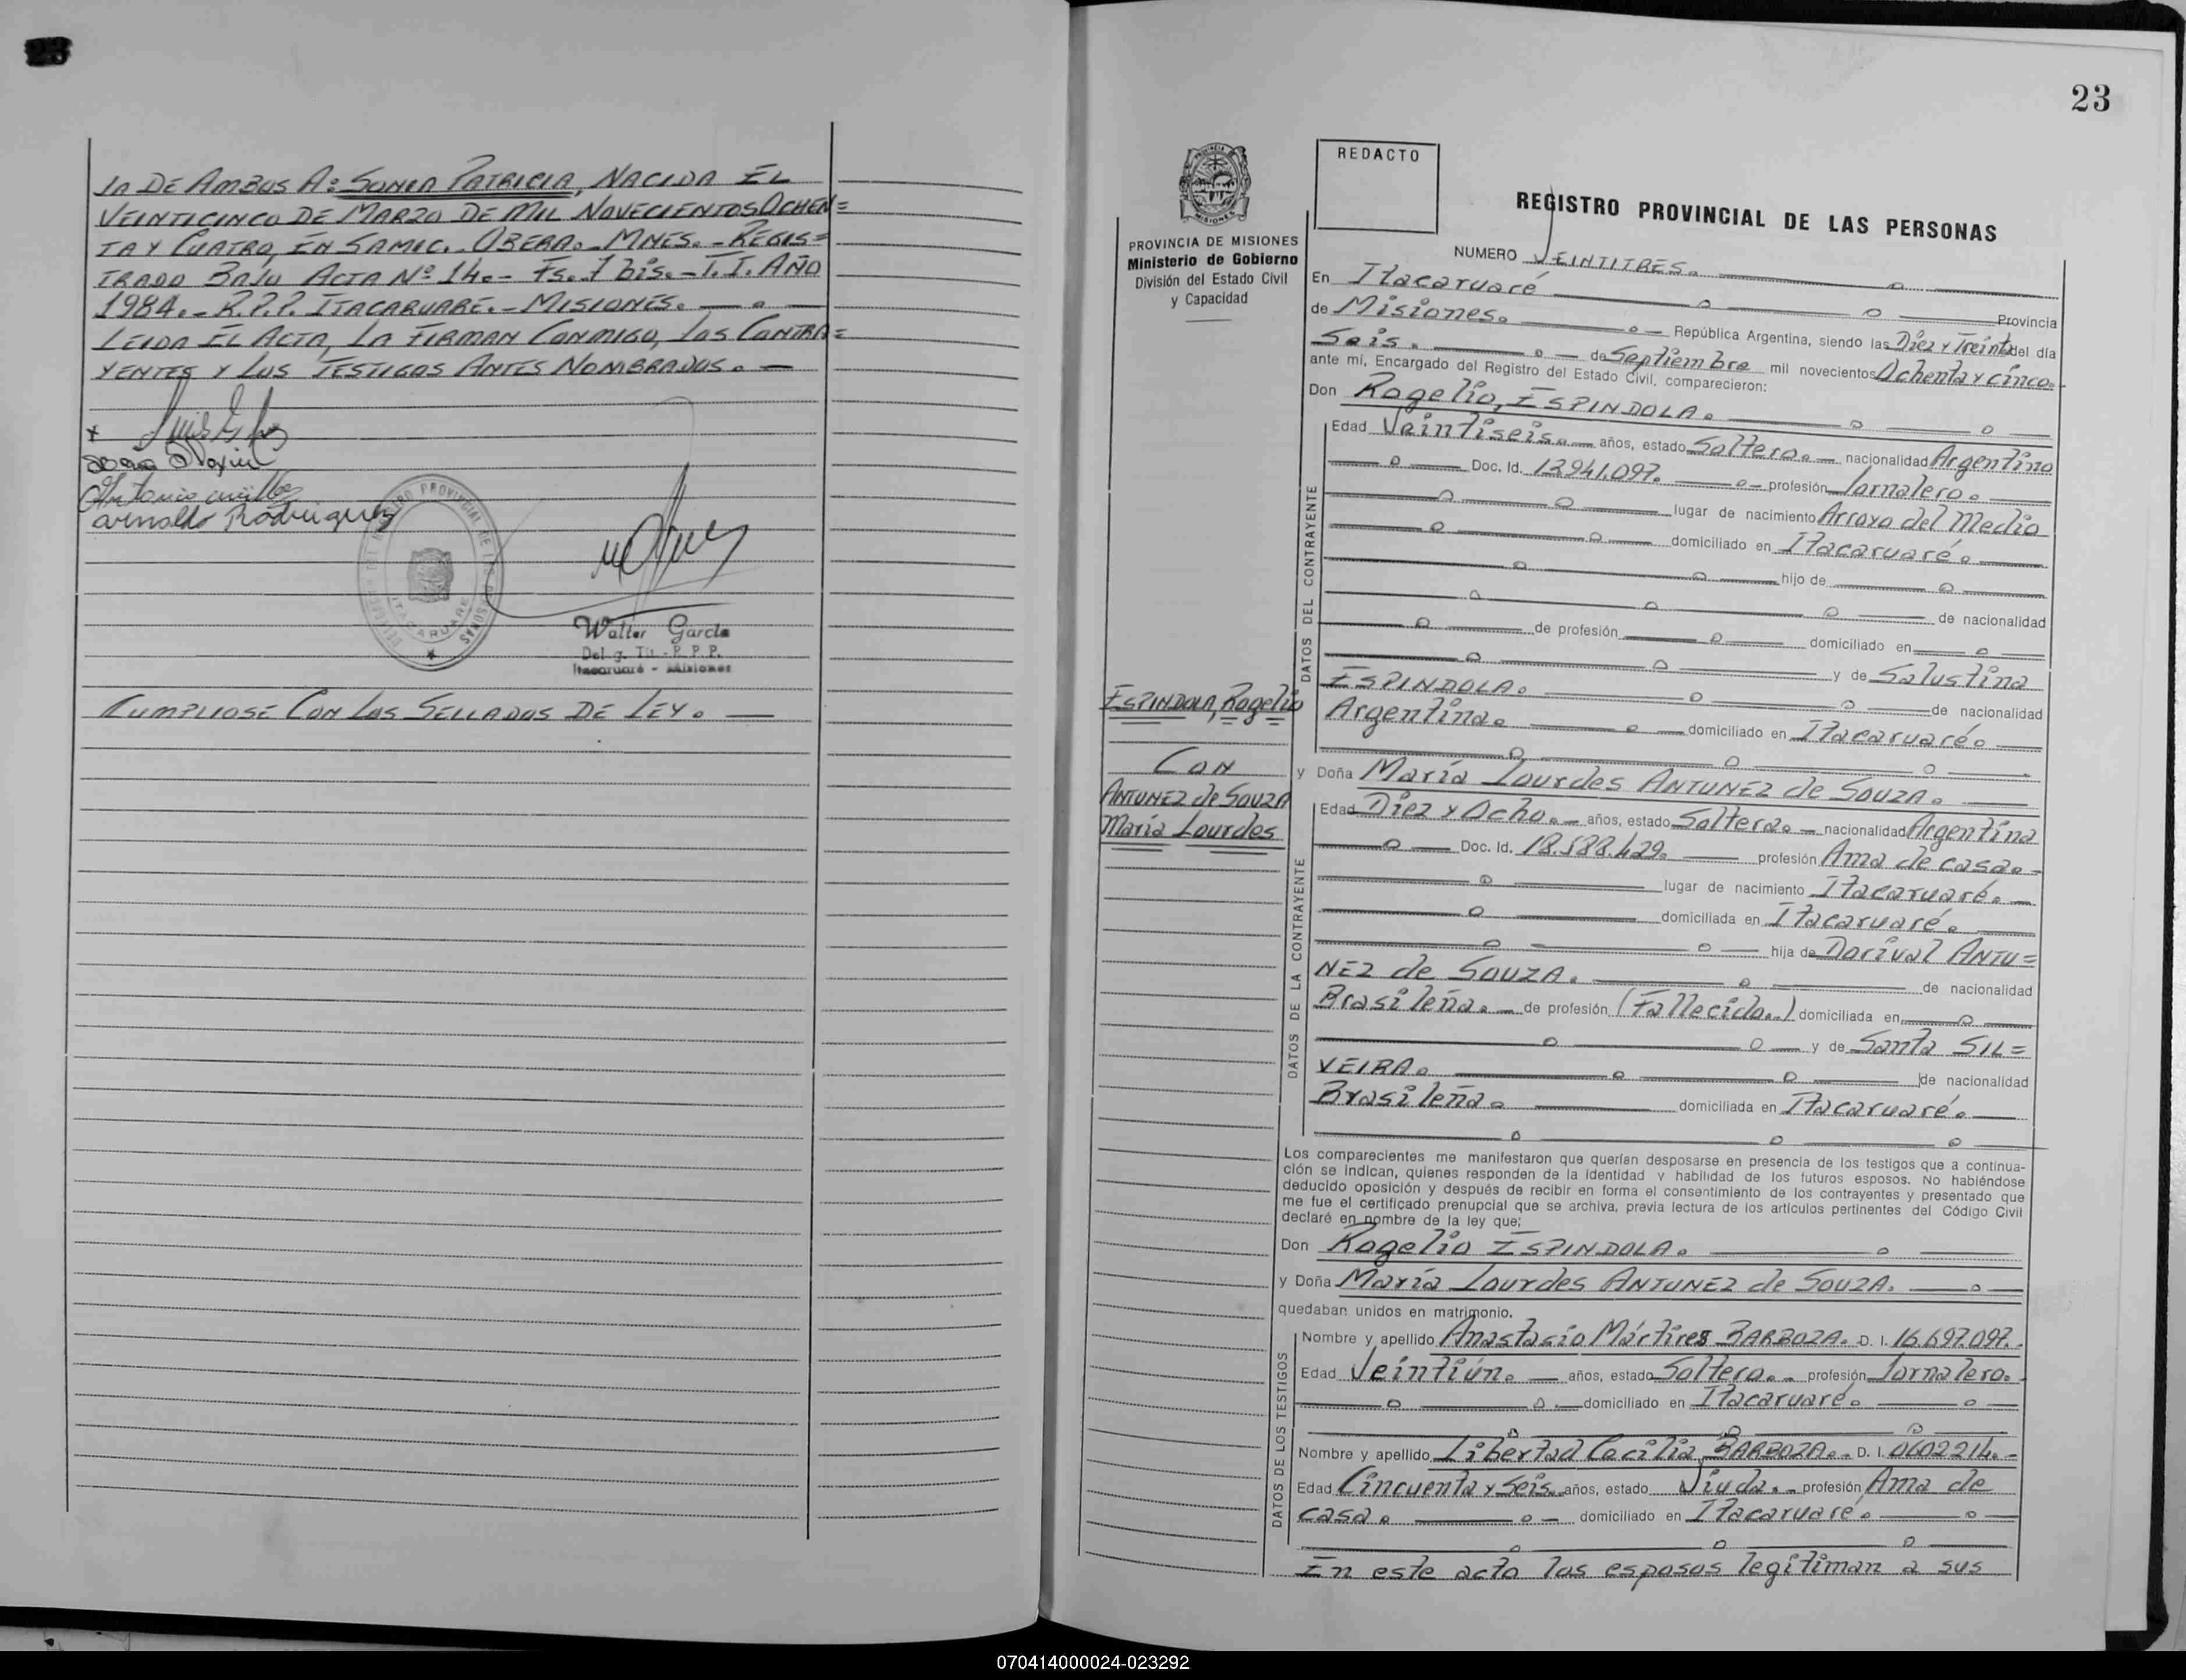 JA DE AMBOS A: SONIA PATRICIA, NACIDA EL
VEINTICINCO DE MARZO DE MIL NOVECIENTOS OCHEN=
TA Y CUATRO, EN SAMIC. OBERA.- MNES.- REGIS=
TRADO BAJO ACTA Nº 14.- Fs. 7 bis.- T.I. AÑO
1984.- R.P.P. ITACARUARE.- MISIONES.
LEIDA EL ACTA, LA FIRMAN CONMIGO, LOS CONTRA=
YENTES Y LOS TESTIGOS ANTES NOMBRADOS.
Arnaldo Rodriguez
ITACARUARE
Walter García
Deleg. Tit - R. P. P.
Itacaruaré - Misiones
CUMPLIOSE CON LOS SELLADOS DE LEY.
23
PROVINCIA DE MISIONES
Ministerio de Gobierno
División del Estado Civil
y Capacidad
REDACTO
REGISTRO PROVINCIAL DE LAS PERSONAS
NUMERO VEINTITRES.
En Itacaruaré Provincia
de Misiones. República Argentina, siendo las Diez y Treinta del día
Seis. de Septiembre mil novecientos Ochenta y cinco.
ante mí, Encargado del Registro del Estado Civil, comparecieron:
Don Rogelio, ESPINDOLA.
Edad Veintiseis.- años, estado Soltero.- nacionalidad Argentina
Doc. Id. 12.941.097. profesión Jornalero.
lugar de nacimiento Arroyo del Medio
domiciliado en Itacaruaré.
hijo de
de nacionalidad
de profesión domiciliado en
y de Salustina
ESPINDOLA. de nacionalidad
Argentina. domiciliado en Itacaruaré.
DATOS DEL CONTRAYENTE
ESPINDOLA, Rogelio
CON
ANTUNEZ de SOUZA
María Lourdes
y Doña María Lourdes ANTUNEZ de SOUZA.
Edad Diez y Ocho.- años, estado Soltera.- nacionalidad Argentina
Doc. Id. 18.588.429. profesión Ama de casa.-
lugar de nacimiento Itacaruaré.
domiciliada en Itacaruaré.
hija de Dorival ANTU=
NEZ de SOUZA. de nacionalidad
Brasileña.- de profesión (Fallecido.) domiciliada en
y de Santa SIL=
VEIRA. de nacionalidad
Brasileña. domiciliada en Itacaruaré.
DATOS DE LA CONTRAYENTE
Los comparecientes me manifestaron que querían desposarse en presencia de los testigos que a continua-
ción se indican, quienes responden de la identidad y habilidad de los futuros esposos. No habiéndose
deducido oposición y después de recibir en forma el consentimiento de los contrayentes y presentado que
me fue el certificado prenupcial que se archiva, previa lectura de los artículos pertinentes del Código Civil
declaré en nombre de la ley que;
Don Rogelio ESPINDOLA.
y Doña María Lourdes ANTUNEZ de SOUZA.
quedaban unidos en matrimonio.
Nombre y apellido Anastasio Mártires BARBOZA. D. I. 16.697.097.-
Edad Veintiún. años, estado Soltero.- profesión Jornalero.
domiciliado en Itacaruaré.
Nombre y apellido Libertad Cecilia BARBOZA.- D. I. 0602214.-
Edad Cincuenta y Seis. años, estado Viuda.- profesión Ama de
casa. domiciliado en Itacaruaré.
DATOS DE LOS TESTIGOS
En este acto los esposos legitiman a sus
070414000024-023292